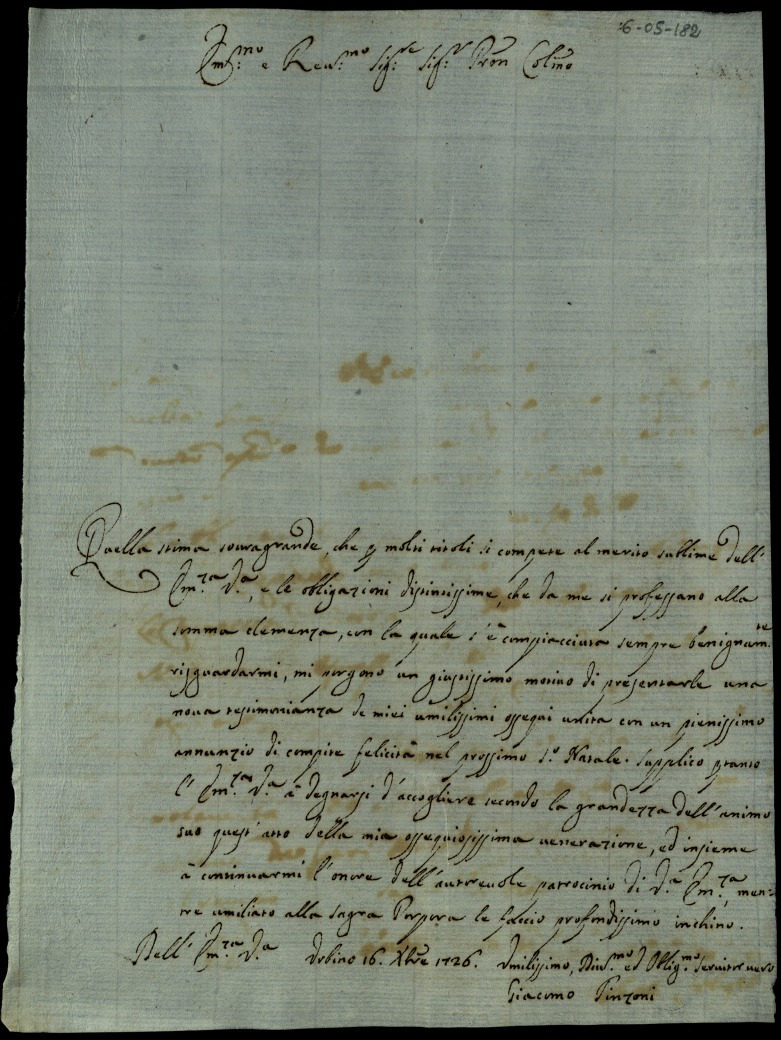 6-05-182
Em.mo e Reu.mo Sig.re Sig.r Pron Colmo
Quella stima souragrande, che p molti titoli si compete al merito sublime dell'
Em.za V.a, e le obligazioni distintissime, che da me si professano alla
somma clemenza, con la quale s'è compiacciuta sempre benignam.te
risguardarmi, mi porgono un giustissimo motiuo di presentarle una
noua testimonianza de miei umilissimi ossequi unita con un pienissimo
annunzio di compite felicità nel prossimo S.o Natale. Supplico ptanto
l'Em.za V.a à degnarsi d'accogliere secondo la grandezza dell'animo
suo quest'atto della mia ossequiosissima uenerazione, ed insieme
à continuarmi l'onore dell'autoreuole patrocinio di V.a Em.za, men-
tre umiliato alla Sagra Porpora le faccio profondissimo inchino.
Dell'Em.za V.a Urbino 16. Xbre 1726. Umilissimo, Diu.mo ed Oblig.mo Seruitor uero
Giacomo Pinzoni